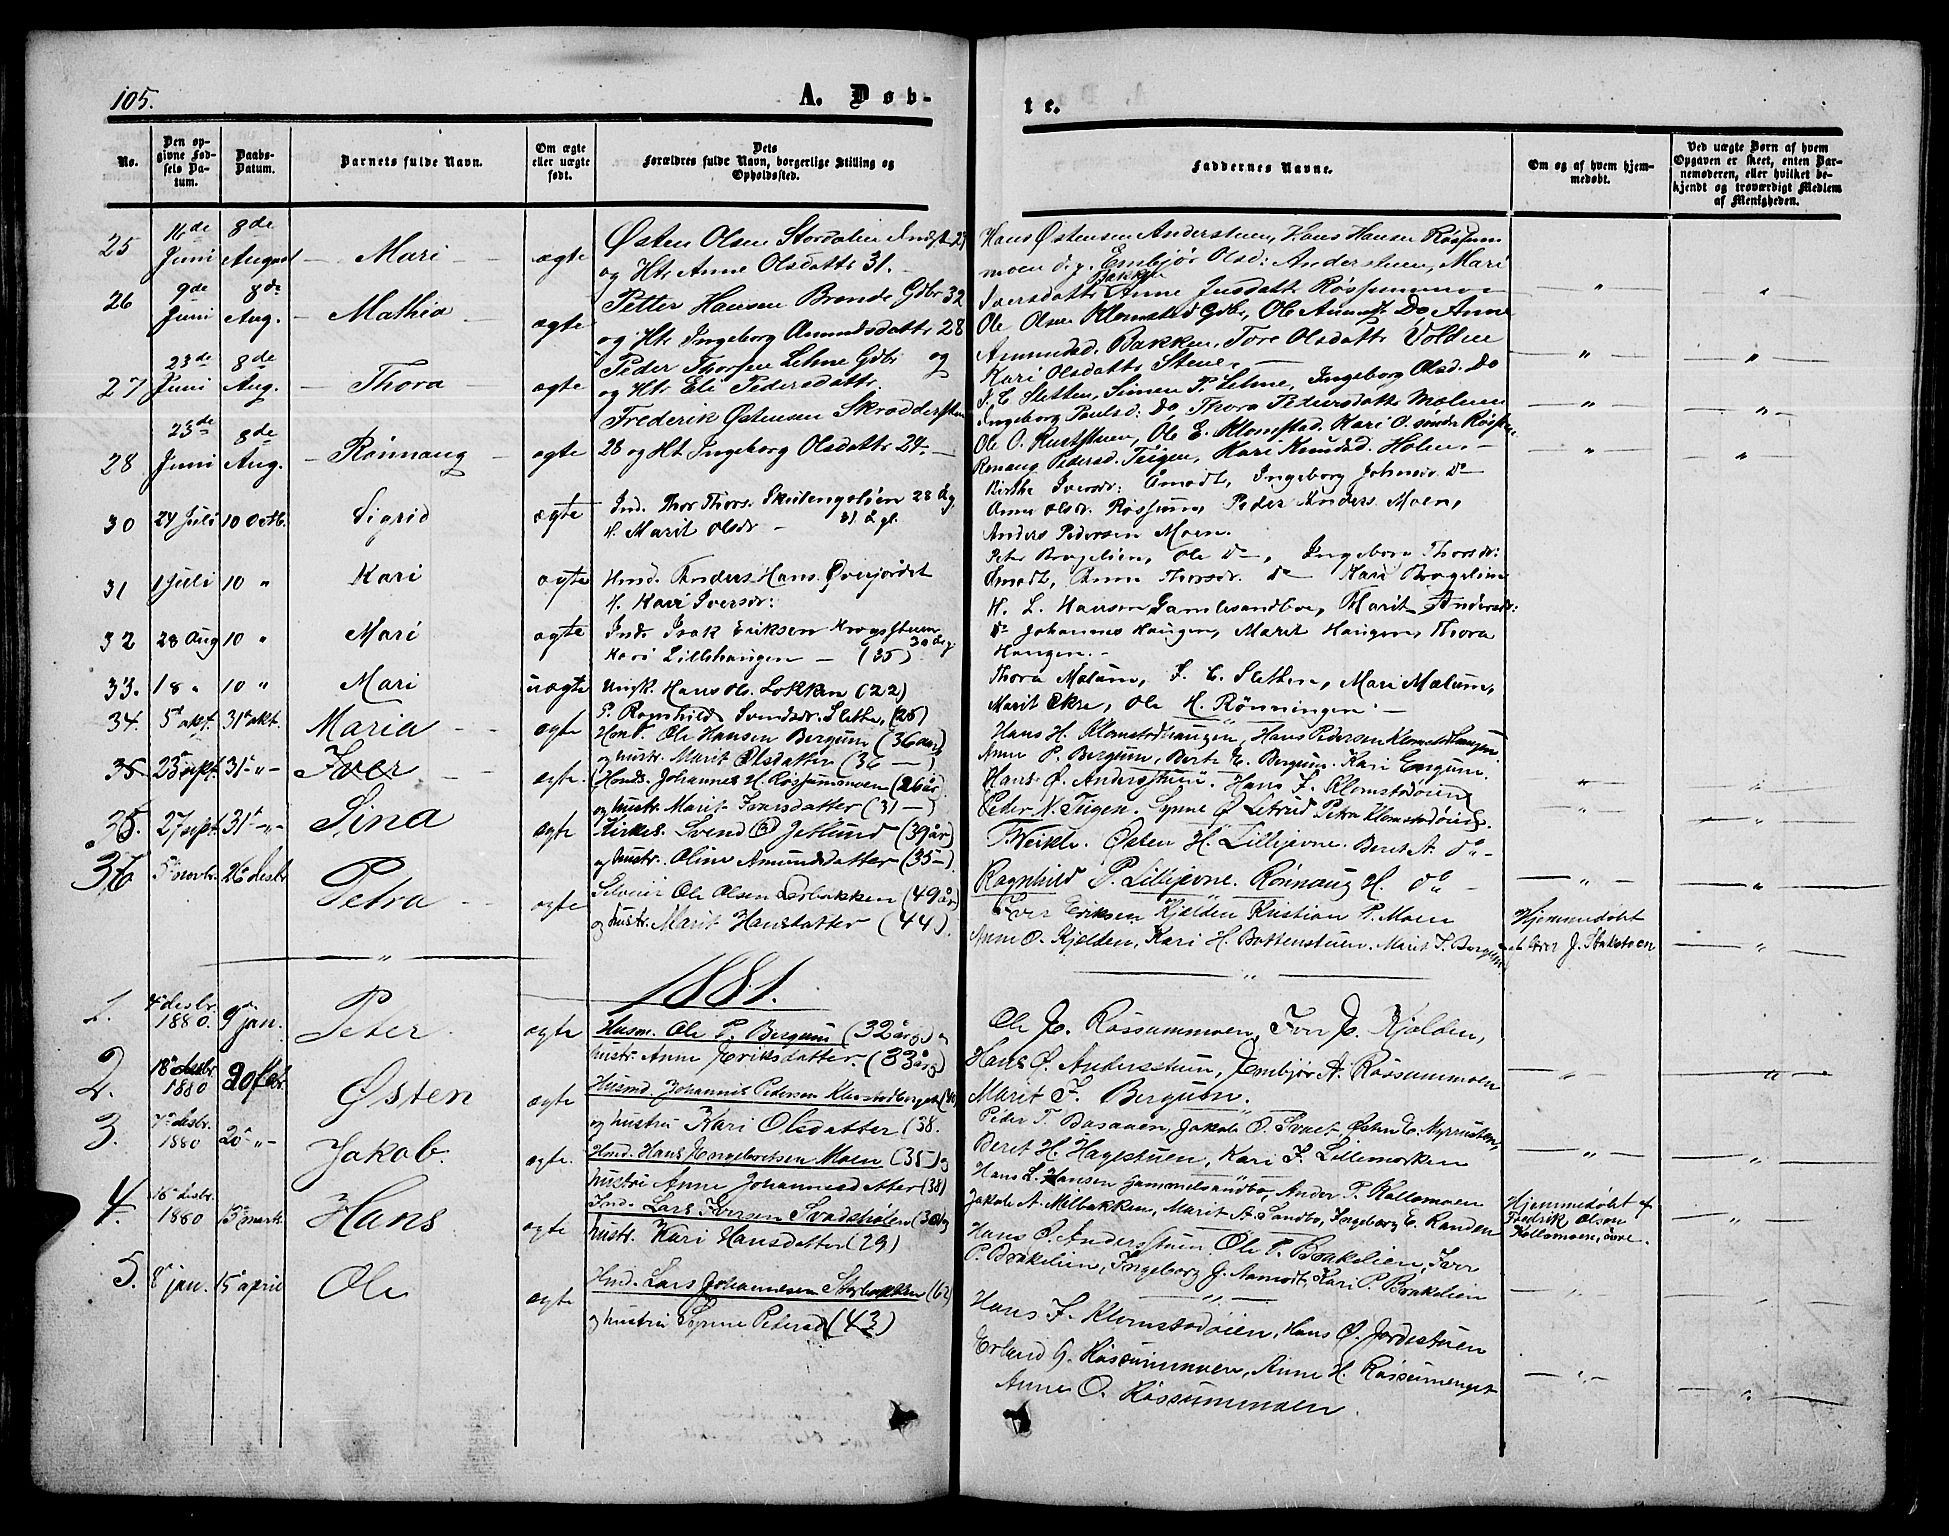 105.
A. Døb-
te.
No.
Den op-
givne Fød-
sels Da-
tum.
Daabs-
Datum.
Barnets fulde Navn.
Om ægte
eller uægte
født.
Dets
Forældres fulde Navn, borgerlige Stilling og
Opholdssted.
Faddernes Navne.
Om og af hvem hjem-
medøbt.
Ved uægte Børn af hvem
Opgaven er skeet, enten Bar-
nemoderen, eller hvilket be-
kjendt og troværdigt Medlem
af Menigheden.
25 16de Juni 8de August Mari ægte Østen Olsen Stordalen
og Htr Anne Olsdattr 31.
Hans Østensen Anderstuen, Hans Hansen Røssum
moen d.y. Embjør Olsd: Anderstuen, Mari
Bakken
Iversdattr Anne
26 9de Juni 8de Aug. Mathia ægte Petter Hansen Brende Gdbr 32
og Htr Ingeborg Amundsdattr 28
Ole Olsen Klomstad Gdbr, Ole Amunds. Do, Anne
Amundsd. Bakken, Tore Olsdattr Volden
Kari Olsdattr Stene
27 23de Juni 8de Aug. Thora ægte Peder Thorsen Lehne Gdbr og
og Htr Eli Pedersdattr.
Sletten, Simen P. Lehne, Ingeborg Olsd. Do
Ingeborg Paulsd: Do Thora Pedersdattr Mælum
28 23de Juni 8de Aug. Rønnaug ægte Frederik Østensen Skrædderstuen
28 og Ht Ingeborg Olsdattr 24
Ole O. Ruststuen, Ole E. Klomstad, Kari O. søndre
Ronaug Pedersd. Teigen, Kari Knudsd. Holen
30 24 Juli 10 Octb. Sigrid ægte Ind. Thor Thors. 28 Aar,
H. Marit Olsdr. 31 å gl.
Birthe Iversdr: Amodt, Ingeborg Johnsdr Do
Anne Olsdr. Røssum, Peder Anders. Moen,
Anders Pedersen Moen.
31 1 Juli 10 " Kari ægte Hmd. Anders Hans. Øverjordet
H. Kari Iversdr:
Peter Bragelien, Ole Do, Ingeborg Thorsdr:
Amodt, Anne Thorsdr. Do Kari Bragelien
32 28 Aug 10 " Mari ægte Ind. Isak Eriksen Krogstuen 30
Kari Lillehaugen (35)
H. L. Hansen Gamlesandboe, Marit Andersdr:
Do Johannes Haugen, Marit Haugen, Thora
Haugen.
33. 18 " 10 " Mari uægte Ungk. Hans Ols. Løkken (22)
P. Ragnhild Svendsdr. Slette, (25)
Thora Mælum, Slethen, Mari Mælum,
Marit Ekre, Ole H. Rønningen
34. 5 okt. 31 okt. Maria ægte Hmd. Ole Hansen Bergum (36 aar)
og hustr. Marit Olsdatter (36 —)
Hans H. Klomstadhaugen, Hans Pedersen Klomstadhaugen
Anne P. Bergum, Berte E. Bergum, Kari Engum.
35 23 sept. 31 " Iver ægte. Hmd. Johannes H. Røssumsmoen (26 år)
og hustr. Marit Iversdatter (31 —)
Hans Ø. Andersstuen. Hans J. Klomstadøien
Peter N. Teigen. Synne Ø. Petra Klomstadøien.
35. 27 sept. 31 " Sina ægte Kirkes. Svend Jetlund (39 år)
og hustr. Oline Amundsdatter (35 —)
Østen H. Lillijevne. Beret A. do
Ragnhild P. Lillijevne. Rønnaug H. do
36 5 novbr. 26 desbr Petra ægte Selveier Ole Olsen (49 år)
og hustr. Marit Hansdatter (44).
Iver Eriksen Kjølden Kristian P. Moen
Anne O. Kjølden, Kari H. Bottenstuen. Marit I. Bergum
Hjemmedøbt
af Iver J. Stakstoen
1881.
1. 4 desbr. 1880. 9 jan. Peter ægte Husm. Ole P. Bergum (32 år) og
hustr. Anne Eriksdatter. (33 år)
Ole J. Røssummoen, Iver J. Kjølden,
Hans Ø. Andersstuen, Embjør A. Røssummoen
Marit I. Bergum.
2. 18 desbr 1880 20 febr. Østen ægte Husmd. Johannes Pedersen
og hustru Kari Olsdatter (38.
Peter T. Jakob O. Svaet, Østen E.
Beret H. Hagestuen, Kari I. Lillemorken
3. 7 desbr. 1880 20 " Jakob. ægte. Hmd. Hans Engebretsen Moen (35) og
hustri Anne Johannesdatter (38)
Hans L. Hansen Gammelsandbo, Ander P. Kollomoen
Jakob A. Melbakken, Marit A. Sandbo, Ingeborg E. Randen
4. 16 desbr. 1880 13 marts Hans ægte Ind. Lars Iversen (30) og
hustr. Kari Hansdatter (29)
Hans Ø. Andersstuen Ole P. Brakelien, Iver
P. Brakelien, Ingeborg J. Aamodt, Kari P. Brakelien
Hjemmedøbt af
Fredrik Olson
Kollomoen, øvre.
5. 8 jan. 15 april Ole ægte Hmd. Lars Johannesen (62)
og hustru Synne Pedersd (43)
Hans F. Klomstadøien, Hans Ø. Jordestuen
Erland G. Røssummoen, Anne H. Røssumenget
Anne O. Røssummoen.